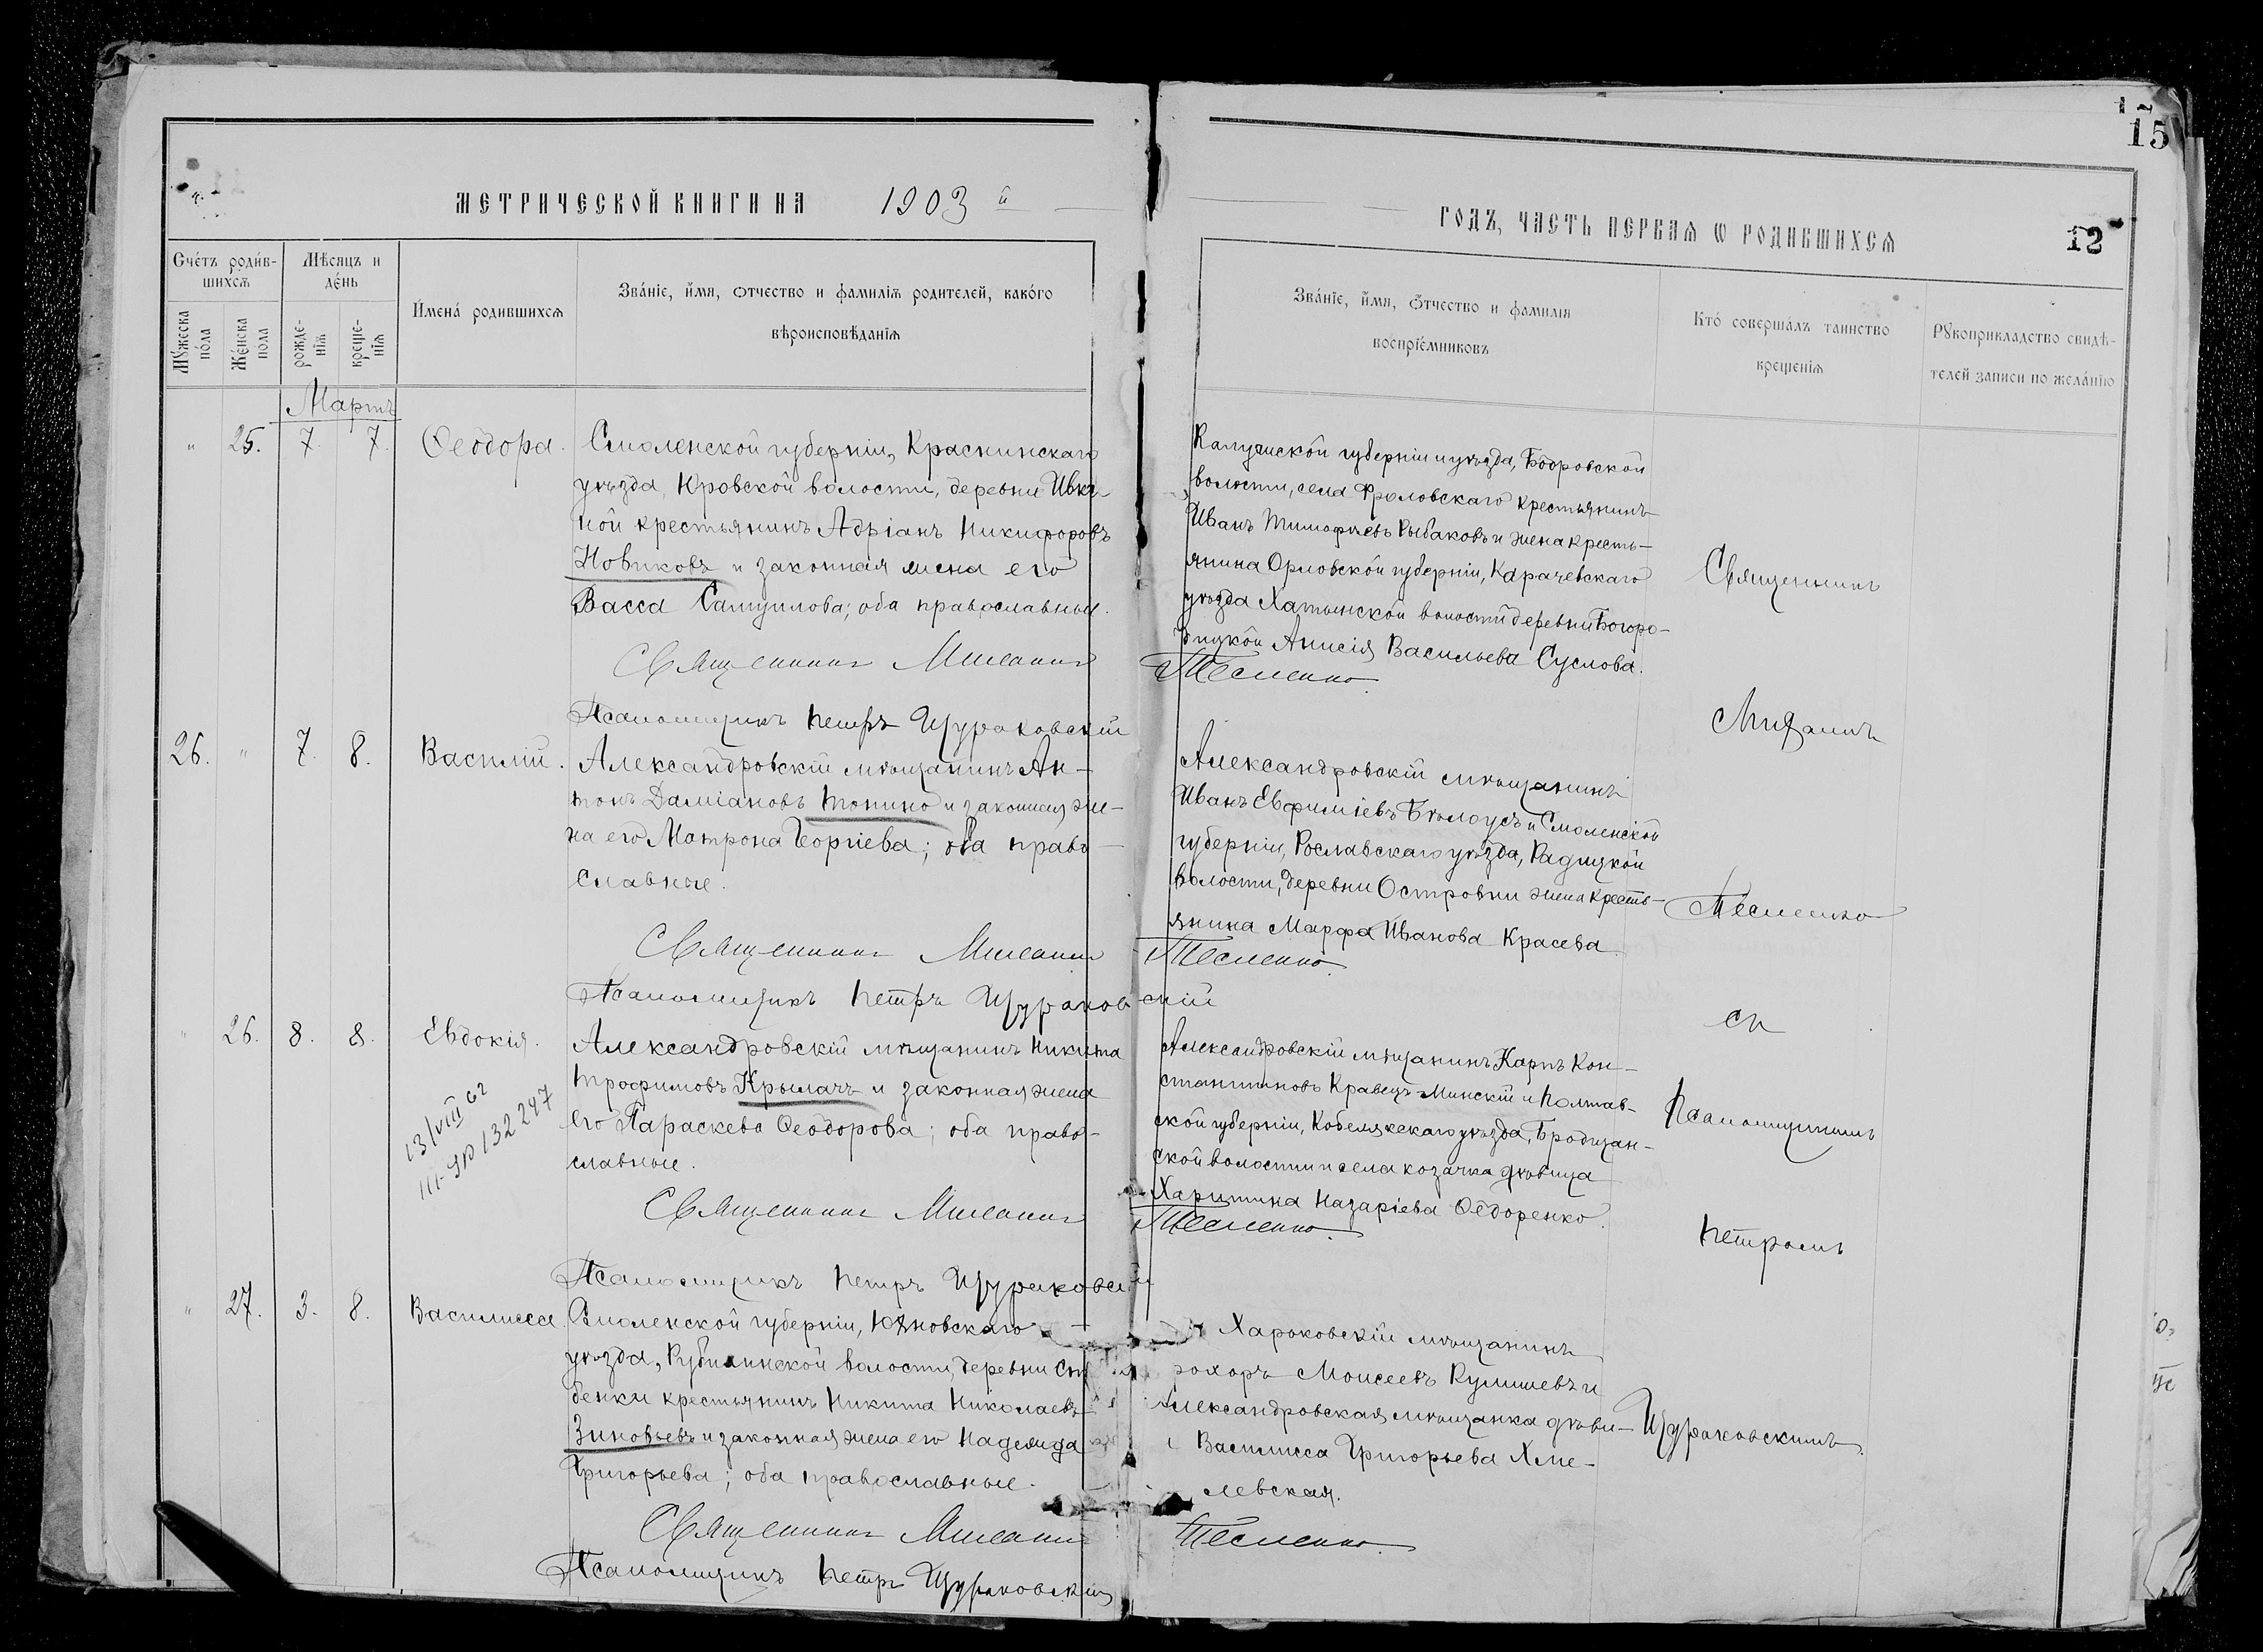 15
МЕТРИЧЕСКОЙ КНИГИ НА 1903 й
ГОДЪ, ЧАСТЬ ПЕРВАЯ Ѡ РОДИВШИХСЯ
12
Счетъ родив-
шихся
Мѣсяцъ и
день
Имена родившихся
Званіе, имя, отчество и фамилія родителей, какого
вѣроисповѣданія
Мужеска
пола
Женска
пола
рожде-
нія
креще-
нія
Званіе, имя, отчество и фамилія
воспріемниковъ
Кто совершалъ таинство
крещенія
Рукоприкладство свидѣ-
телей записи по желанію
Мартъ
" 25. 7. 7. Ѳеодора.
Смоленской губерніи, Краснинскаго
уѣзда, Юровской волости, деревни Ивки-
ной крестьянинъ Адріанъ Никифоровъ
Новиковъ и законная жена его
Васса Самуилова; оба православные.
Священникъ Михаилъ
Тесленко.
Псаломщикъ Петръ Щураковскій
Калужской губерніи и уѣзда, Бобровской
волости, села Фроловскаго крестьянинъ
Иванъ Тимофѣевъ Рыбаковъ и жена кресть-
янина Орловской губерніи, Карачевскаго
уѣзда Хатынской волости деревни Богоро-
дицкой Анисія Васильева Суслова.
26. " 7. 8. Василій.
Александровскій мѣщанинъ Ан-
тонъ Даміановъ Тонино и законная же-
на его Матрона Георгіева; оба право-
славные.
Священникъ Михаилъ
Тесленко.
Псаломщикъ Петръ Щураковскій
Александровскій мѣщанинъ
Иванъ Евфиміевъ Бѣлоусъ и Смоленской
губерніи, Рославскаго уѣзда, Радицкой
волости, деревни Островки жена кресть-
янина Марфа Иванова Красева.
" 26. 8. 8. Евдокія.
13/VIII 62
III-ЯР 132247
Александровскій мѣщанинъ Никита
Трофимовъ Крымачъ и законная жена
его Параскева Ѳеодорова; оба право-
славные.
Священникъ Михаилъ
Тесленко.
Псаломщикъ Петръ Щураковскій
Александровскій мѣщанинъ Карпъ Кон-
стантиновъ Кравецъ-Минскій и Полтав-
ской губерніи, Кобелякскаго уѣзда, Бродщан-
ской волости и села козачка дѣвица
Харитина Назаріева Ѳедоренко.
" 27. 3. 8. Василисса.
Смоленской губерніи, Юхновскаго
уѣзда, Рубихинской волости, деревни
бенки крестьянинъ Никита Николаевъ
Зиновьевъ и законная жена его Надежда
Григорьева; оба православные.
Священникъ Михаилъ
Тесленко.
Псаломщикъ Петръ Щураковскій
Харьковскій мѣщанинъ
рохоръ Моисеевъ Кулишевъ и
Александровская мѣщанка дѣви-
Василисса Григорьева Хме-
левская.
Священникъ
Михаилъ
Тесленко
съ
Псаломщикомъ
Петромъ
Щураковскимъ.